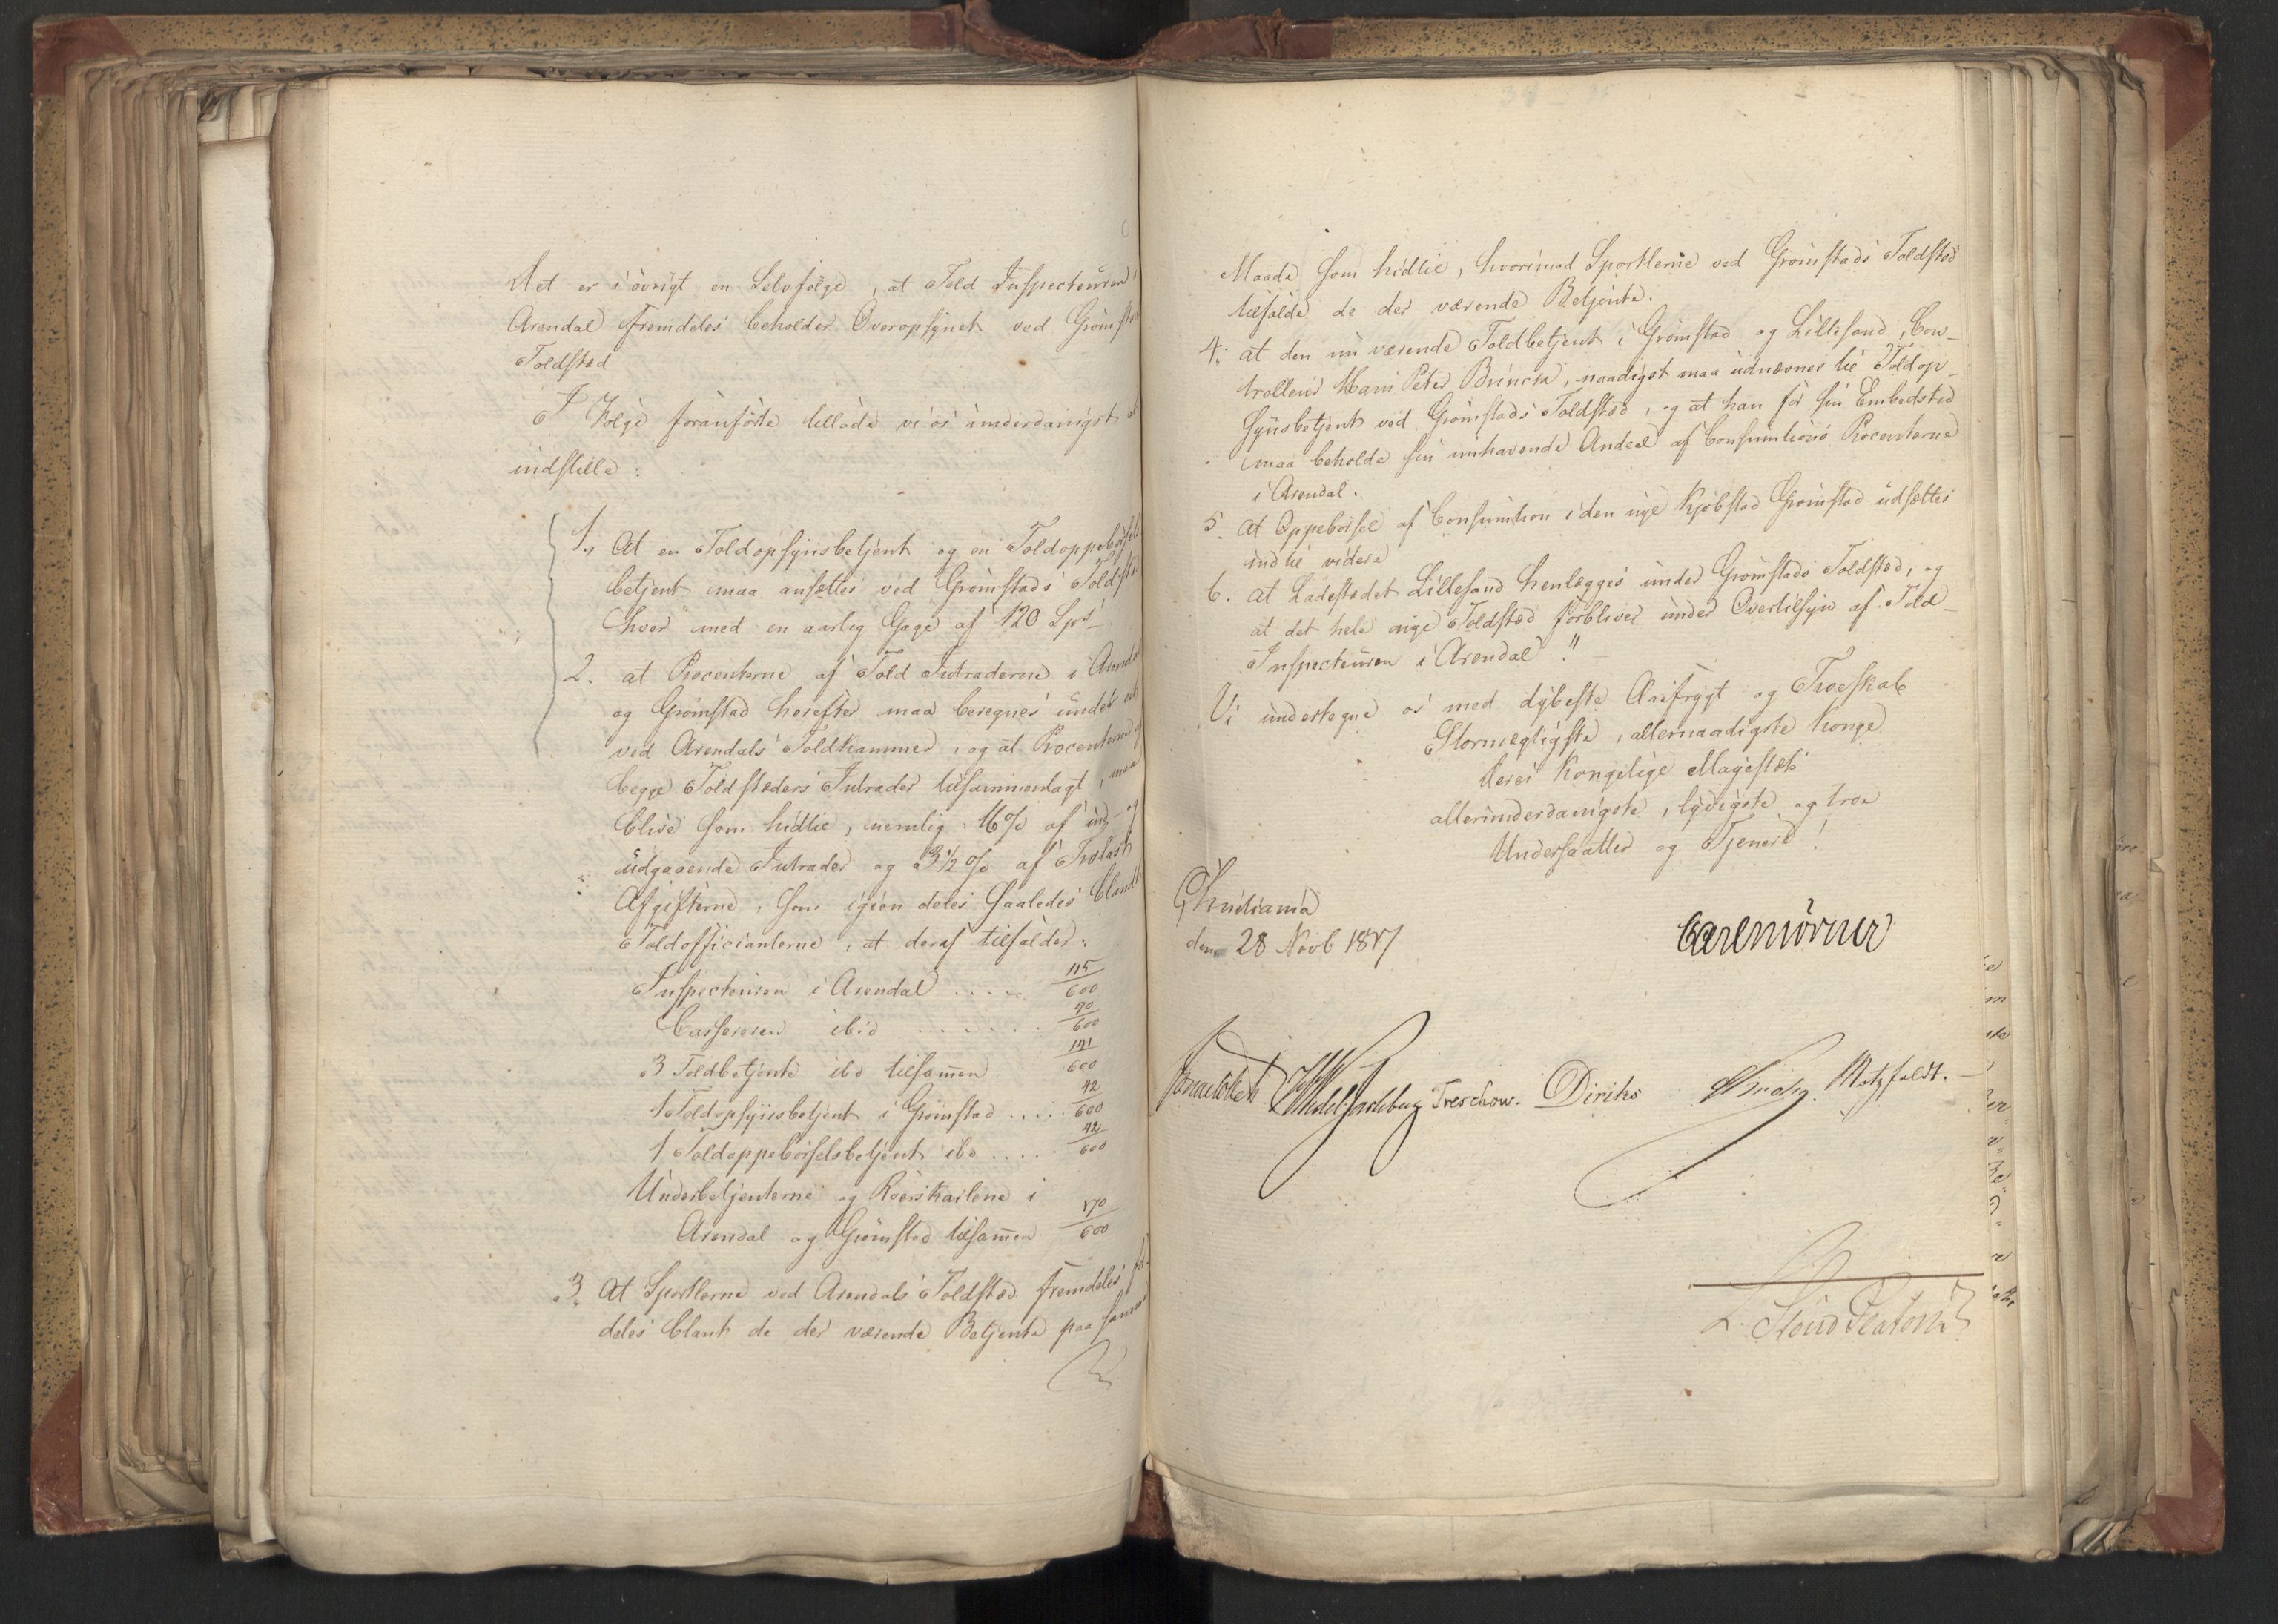 Det er i övrigt en Selvfölge, at Told Inspecteuren i
Arendal fremdeles beholder Overopsynet ved Grömstad
Toldsted
I Fölge foranförte tillade vi os underdanigst at
indstille:
1., At en Toldopsynsbetjent og en Toldoppebörsels
betjent maa ansættes ved Grömstads Toldsted
hver med en aarlig Gage af 120 Spd
2. at Procenterne af Told Intraderne i Arendal
og Grömstad herefter maa beregnes under eet
ved Arendals Toldkammer, og at Procenterne af
begge Toldstæders Intrader tilsammenlagt, maa
blive som hidtil, nemlig 16% af ind- og
udgaaende Intrader og 3½% af Trælast
Afgifterne, som igjen deles saaledes blandt
Toldofficianterne, at deraf tilfalder:
Inspecteuren i Arendal .... 115/600
Casserern ibid ...... 90/600
3 Toldbetjente ibd tilsam̅en 141/600
1 Toldopsynsbetjent i Grömstad .... 42/600
1 Toldoppebörselsbetjent ibd ..... 42/600
Underbetjenterne og Roerskarlene i
Arendal og Grömstad tilsam̅en 170/600
3. At Sportlerne ved Arendals Toldsted fremdeles for-
deles blant de der værende Betjente paa samme
Maade som hidtil, hvorimod Sportlerne ved Grömstads Toldsted
tilfalde de der værende Betjente.
4. at den nu værende Toldbetjent i Grömstad og Lillesand, Con-
trolleur Hans Peter Brinck, naadigst maa udnævnes til Toldop-
synsbetjent ved Grömstads Toldsted, og at han for sin Embedstid
maa beholde sin inhavende Andeel af Consumtions Procenterne
i Arendal.
5. At Oppebörsel af Consumtion i den nye Kjöbstad Grömstad udsættes
indtil videre
6. at Ladestedet Lillesand henlægges under Grömstads Toldsted, og
at det hele nye Toldsted forbliver under Overtilsyn af Told-
Inspecteuren i Arendal."
Vi undertegne os med dybeste Ærefrygt og Troeskab
Stormægtigste, allernaadigste Konge
Deres Kongelige Majestæts
allerunderdanigste, lydigste og troe
Undersaatter og Tjenere!
Christiania
den 28 Novb 1817
Carl Mörner
Sommerhielm HWedel Jarlsberg Treschow. Diriks Krohg. Motzfeldt.
L. Stoud Platou